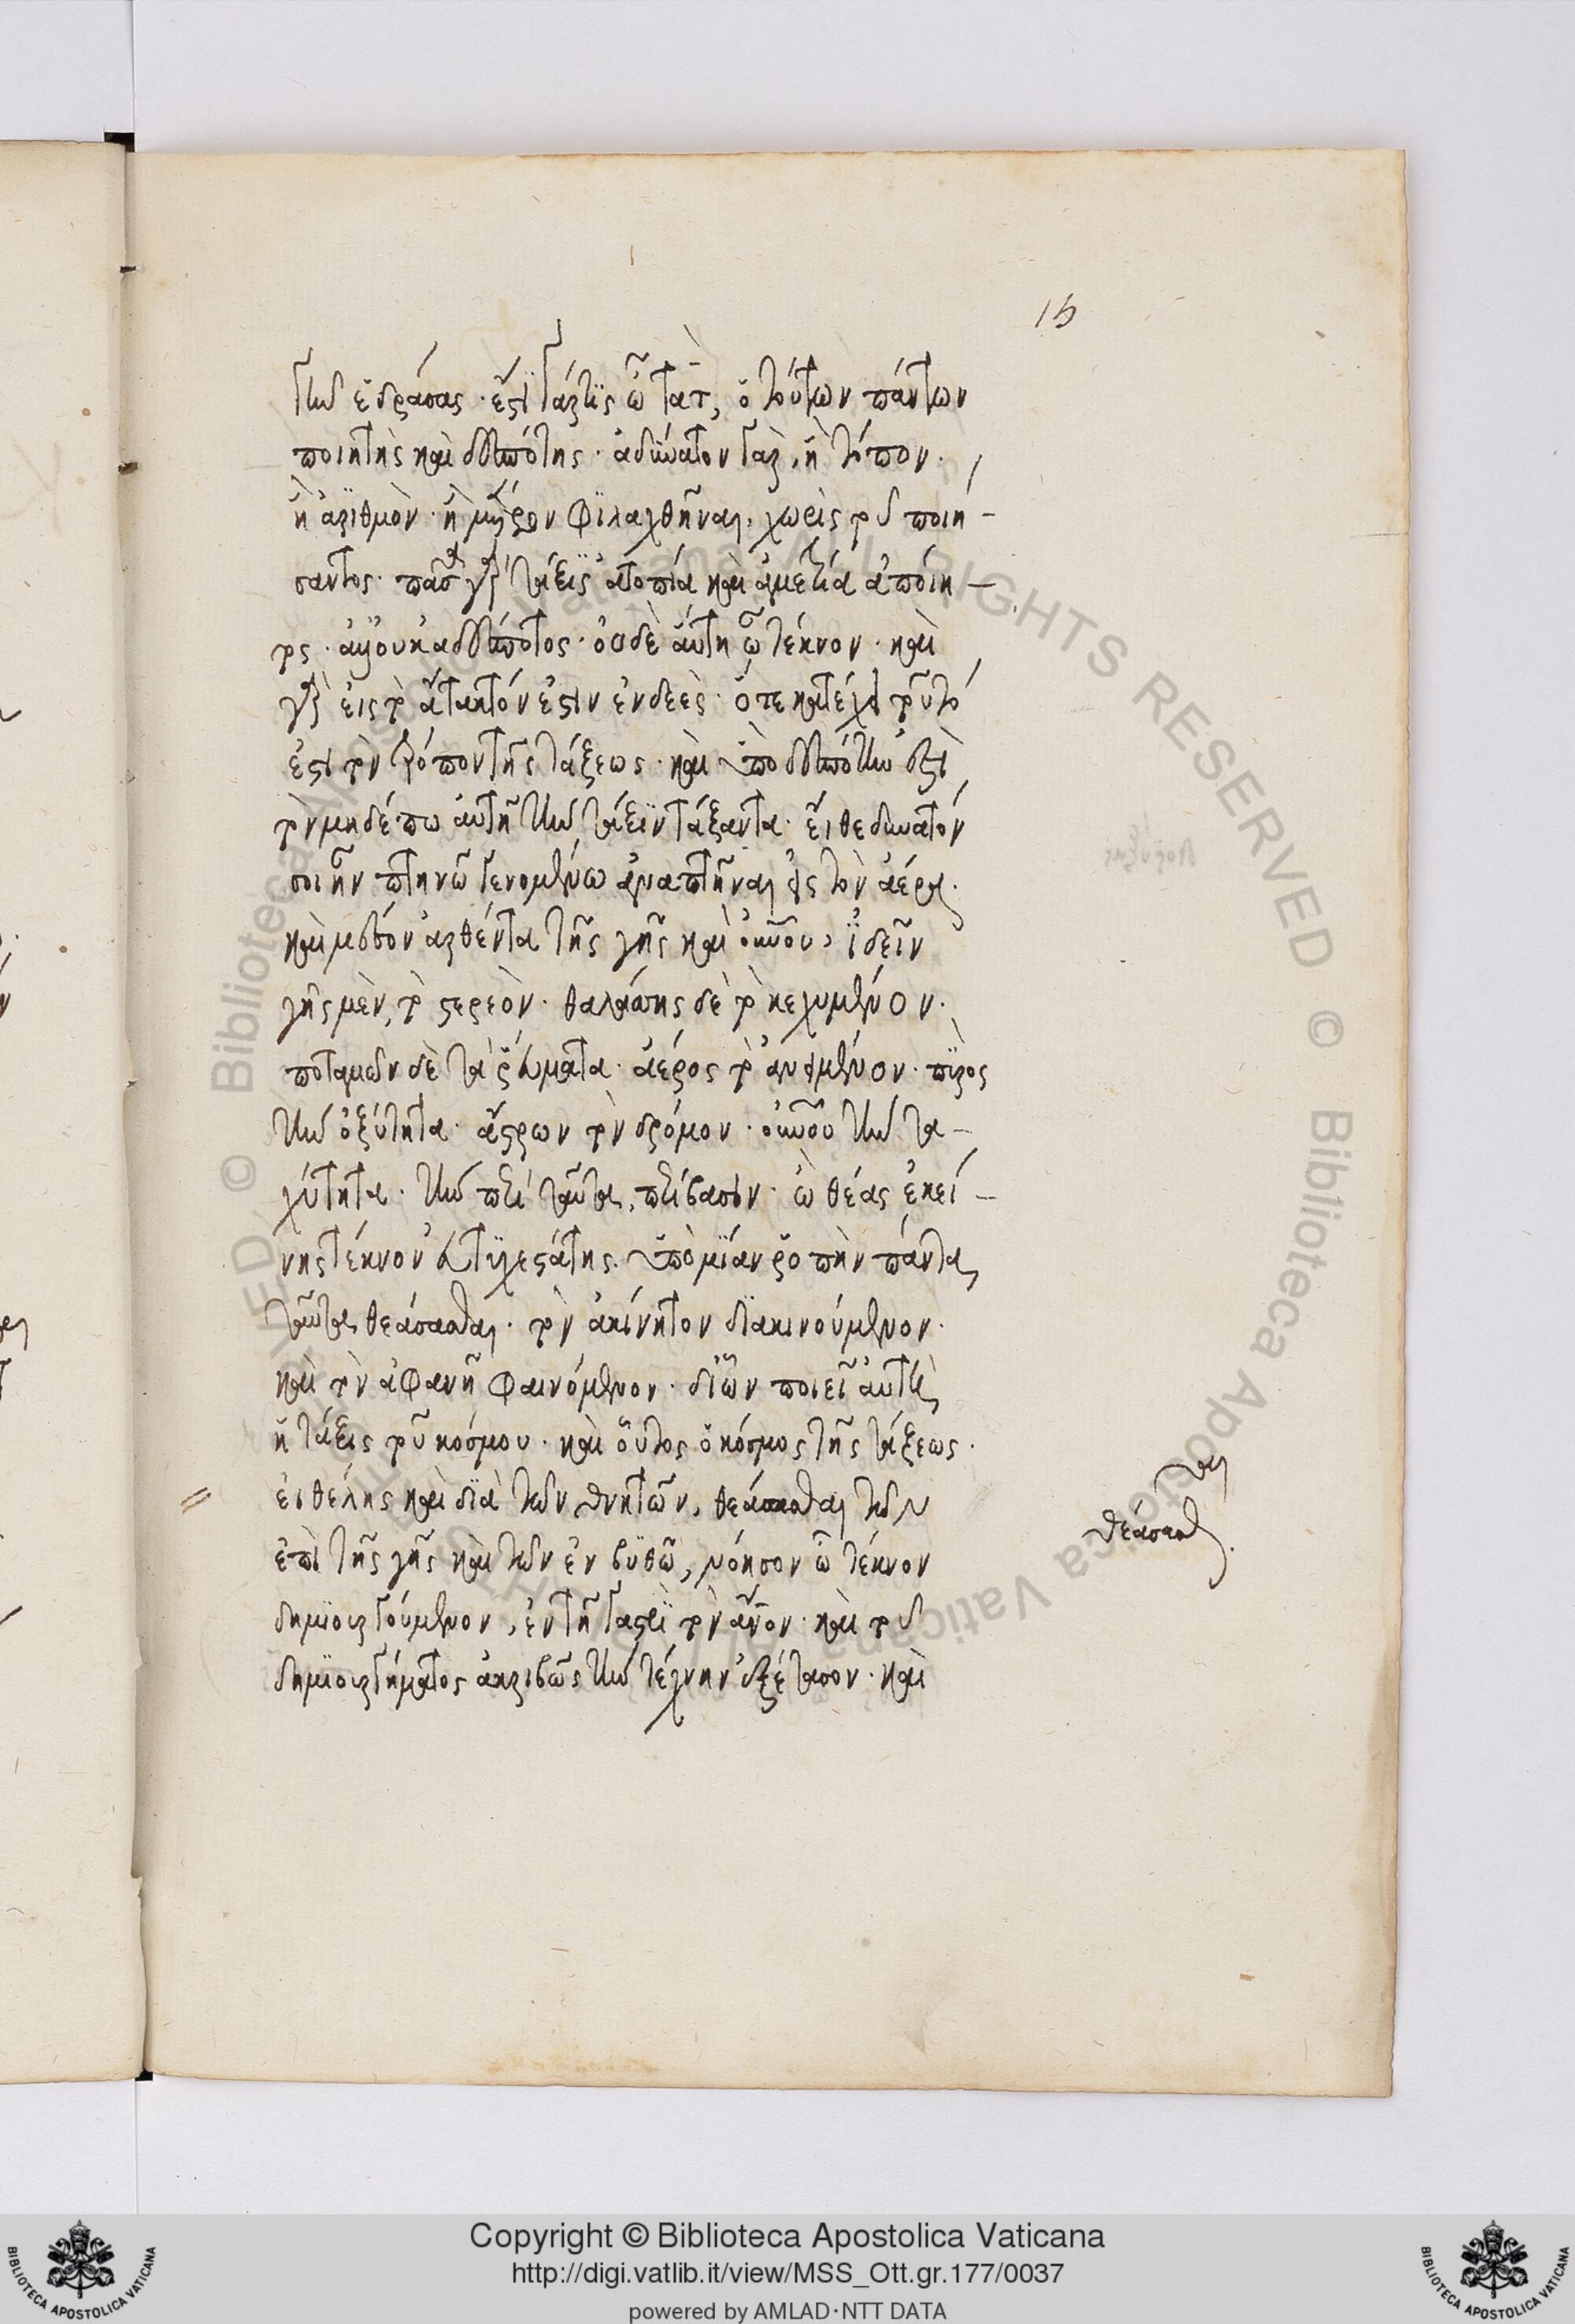 15
γῆν ἑδράσας· ἔστι γάρ τις ὦ τὰτ, ὁ τούτων πάντων
ποιητὴς καὶ δεσπότης· ἀδύνατον γὰρ, ἢ τόπον·
ἢ ἀριθμὸν· ἢ μέτρον φυλαχθῆναι, χωρὶς τοῦ ποιή-
σαντος· πᾶσα γὰρ τάξις ἀτοπία καὶ ἀμετρία ἀποίη-
τος· ἀλλ' οὐκ ἀδέσποτος· οὐδὲ αὕτη ὦ τέκνον· καὶ
γὰρ εἰς τὸ ἄτακτόν ἐστιν ἐνδεὲς· ὅτε κατέχει τοῦτό
ἐστι τὸν τρόπον τῆς τάξεως· καὶ ὑπὸ δεσπότην ἐστὶ
τὸν μηδέπω αὐτῇ τὴν τάξιν τάξαντα· εἴθε δυνατόν
σοι ἦν πτηνῷ γενομένῳ ἀναπτῆναι εἰς τὸν ἀέρα·
καὶ μέσον ἀρθέντα τῆς γῆς καὶ οὐρανοῦ, ἰδεῖν
γῆς μὲν, τὸ στερεὸν· θαλάσσης δὲ τὸ κεχυμένον·
ποταμῶν δὲ τὰ ῥεύματα· ἀέρος τὸ ἀνειμένον· πυρὸς
τὴν ὀξύτητα· ἄστρων τὸν δρόμον· οὐρανοῦ τὴν τα-
χύτητα· τὴν περὶ ταῦτα, περίβασιν· ὦ θέας ἐκεί-
νης τέκνον εὐτυχεστάτης· ὑπὸ μίαν ῥοπὴν πάντα
ταῦτα θεάσασθαι· τὸν ἀκίνητον διακινούμενον·
καὶ τὸν ἀφανῆ φαινόμενον· δι' ὧν ποιεῖ αὐτὴ
ἡ τάξις τοῦ κόσμου· καὶ οὗτος ὁ κόσμος τῆς τάξεως·
εἰ θέλῃς καὶ διὰ τῶν θνητῶν, θεάσασθαι τῶν
ἐπὶ τῆς γῆς καὶ τῶν ἐν βυθῷ, νόησον ὦ τέκνον
δημιουργούμενον, ἐν τῇ γαστρὶ τὸν ἄνον· καὶ τοῦ
δημιουργήματος ἀκριβῶς τὴν τέχνην ἐξέτασον· καὶ
τὰ
θεάσασθαι
Copyright © Biblioteca Apostolica Vaticana
http://digi.vatlib.it/view/MSS_Ott.gr.177/0037
powered by AMLAD·NTT DATA